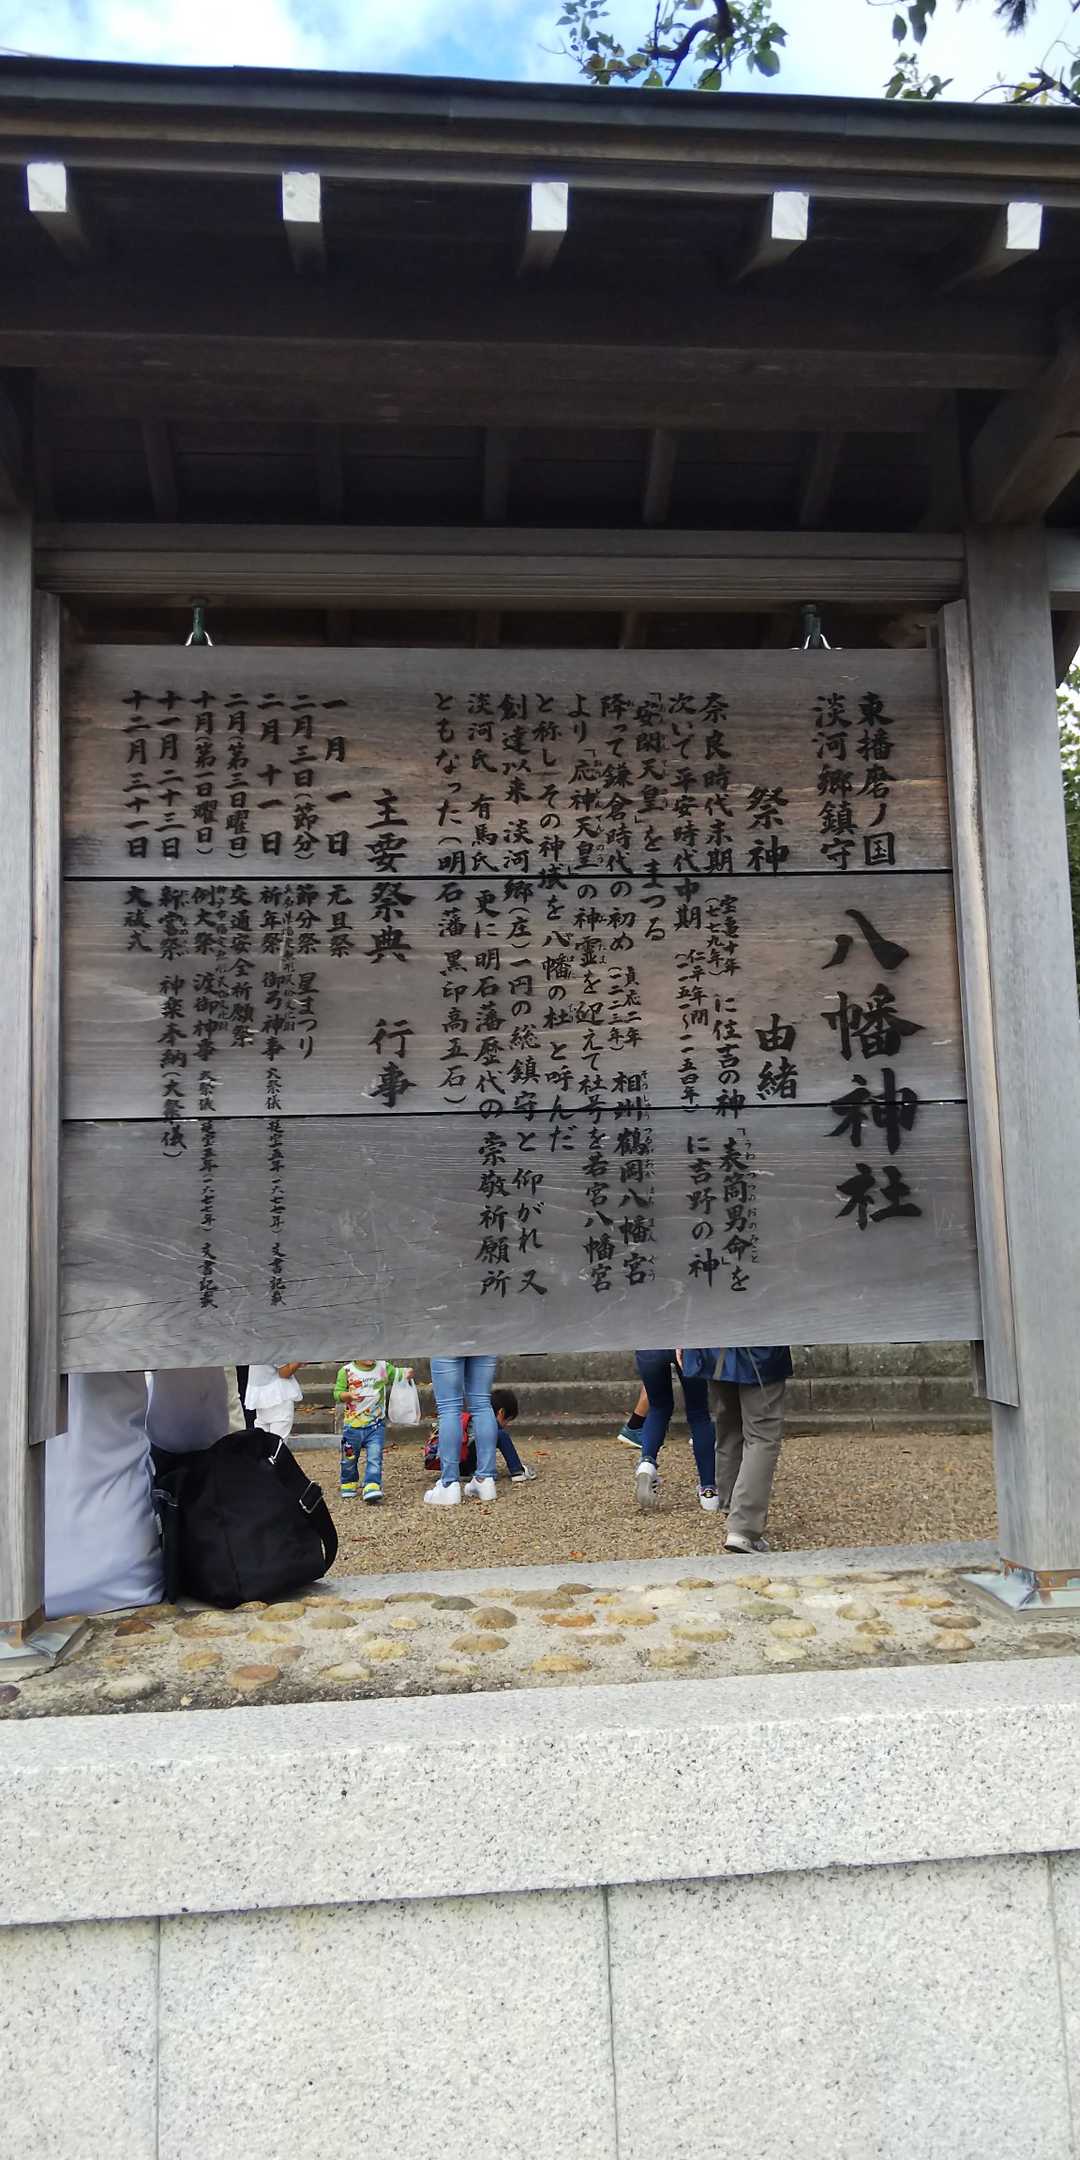 東播磨ノ国
淡河郷鎮守
八幡神社
祭神 由緒
奈良時代末期 (宝亀十年 七七九年) に住吉の神「表筒男命」を
うわつつのおのみこと
次いで平安時代中期 (仁平年間 一一五一〜一一五四年) に吉野の神
「安閑天皇」をまつる
降って鎌倉時代の初め (貞応二年 一二二三年) 相州鶴岡八幡宮
そうしゅうつるがおかはちまんぐう
より「応神天皇」の神霊を迎えて社号を若宮八幡宮
と称しその神域を八幡の杜と呼んだ
創建以来 淡河郷(庄)一円の総鎮守と仰がれ又
淡河氏 有馬氏 更に明石藩歴代の崇敬祈願所
ともなった(明石藩 黒印高五石)
主要祭典 行事
一月一日 元旦祭
二月三日(節分) 節分祭 星まつり
二月十一日 祈年祭 御弓神事 大祭儀 (延宝五年 一六七七年) 文書記載
二月(第三日曜日) 交通安全祈願祭
十月(第一日曜日) 例大祭 渡御神事 大祭儀 (延宝五年 一六七七年) 文書記載
十一月二十三日 新嘗祭 神楽奉納(大祭儀)
十二月三十一日 大祓式